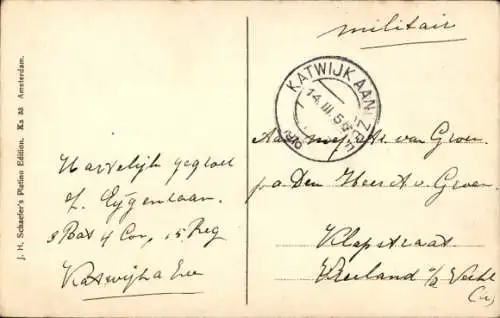 militair
KATWIJK AAN ZEE
14.III.5
Hartelijk gegroet
f. Eÿgenlaan.
3 Bat 4 Com, 15 Reg
Katwijk a Zee
Aan mej A. van Groen.
p.a Den Heer A. v. Groen.
Klapstraat
Vreeland a/d Vecht
(U)
J. H. Schaefer's Platino Edition. Ka 33 Amsterdam.